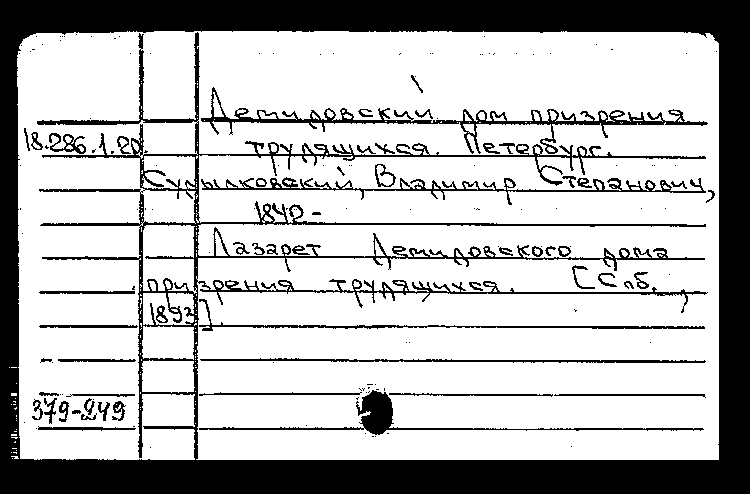 Демидовский дом призрения
18.286.1.20
трудящихся. Петербург.
Судылковский, Владимир Степанович,
1840-
Лазарет Демидовского дома
призрения трудящихся. [Спб.,
1893].
379-249